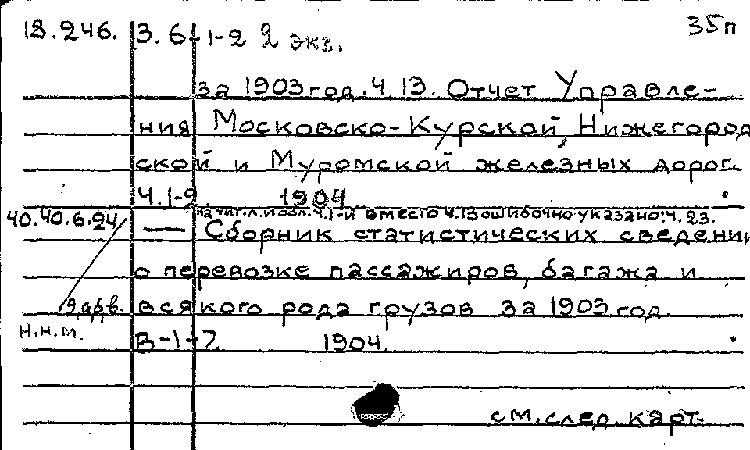 18.246. 3.6 1-2 2 экз. 35п
за 1903 год. Ч. 13. Отчет Управле-
ния Московско-Курской, Нижегород
ской и Муромской железных дорог.
Ч.1-9 1904
на тит. л. изд. ч. 1-й вместо ч.13 ошибочно указано: ч. 23.
40.40.6.24 — Сборник статистических сведений
о перевозке пассажиров, багажа и
всякого рода грузов за 1903 год.
В-1-7. 1904.
Н.Н.М.
см. след. карт.